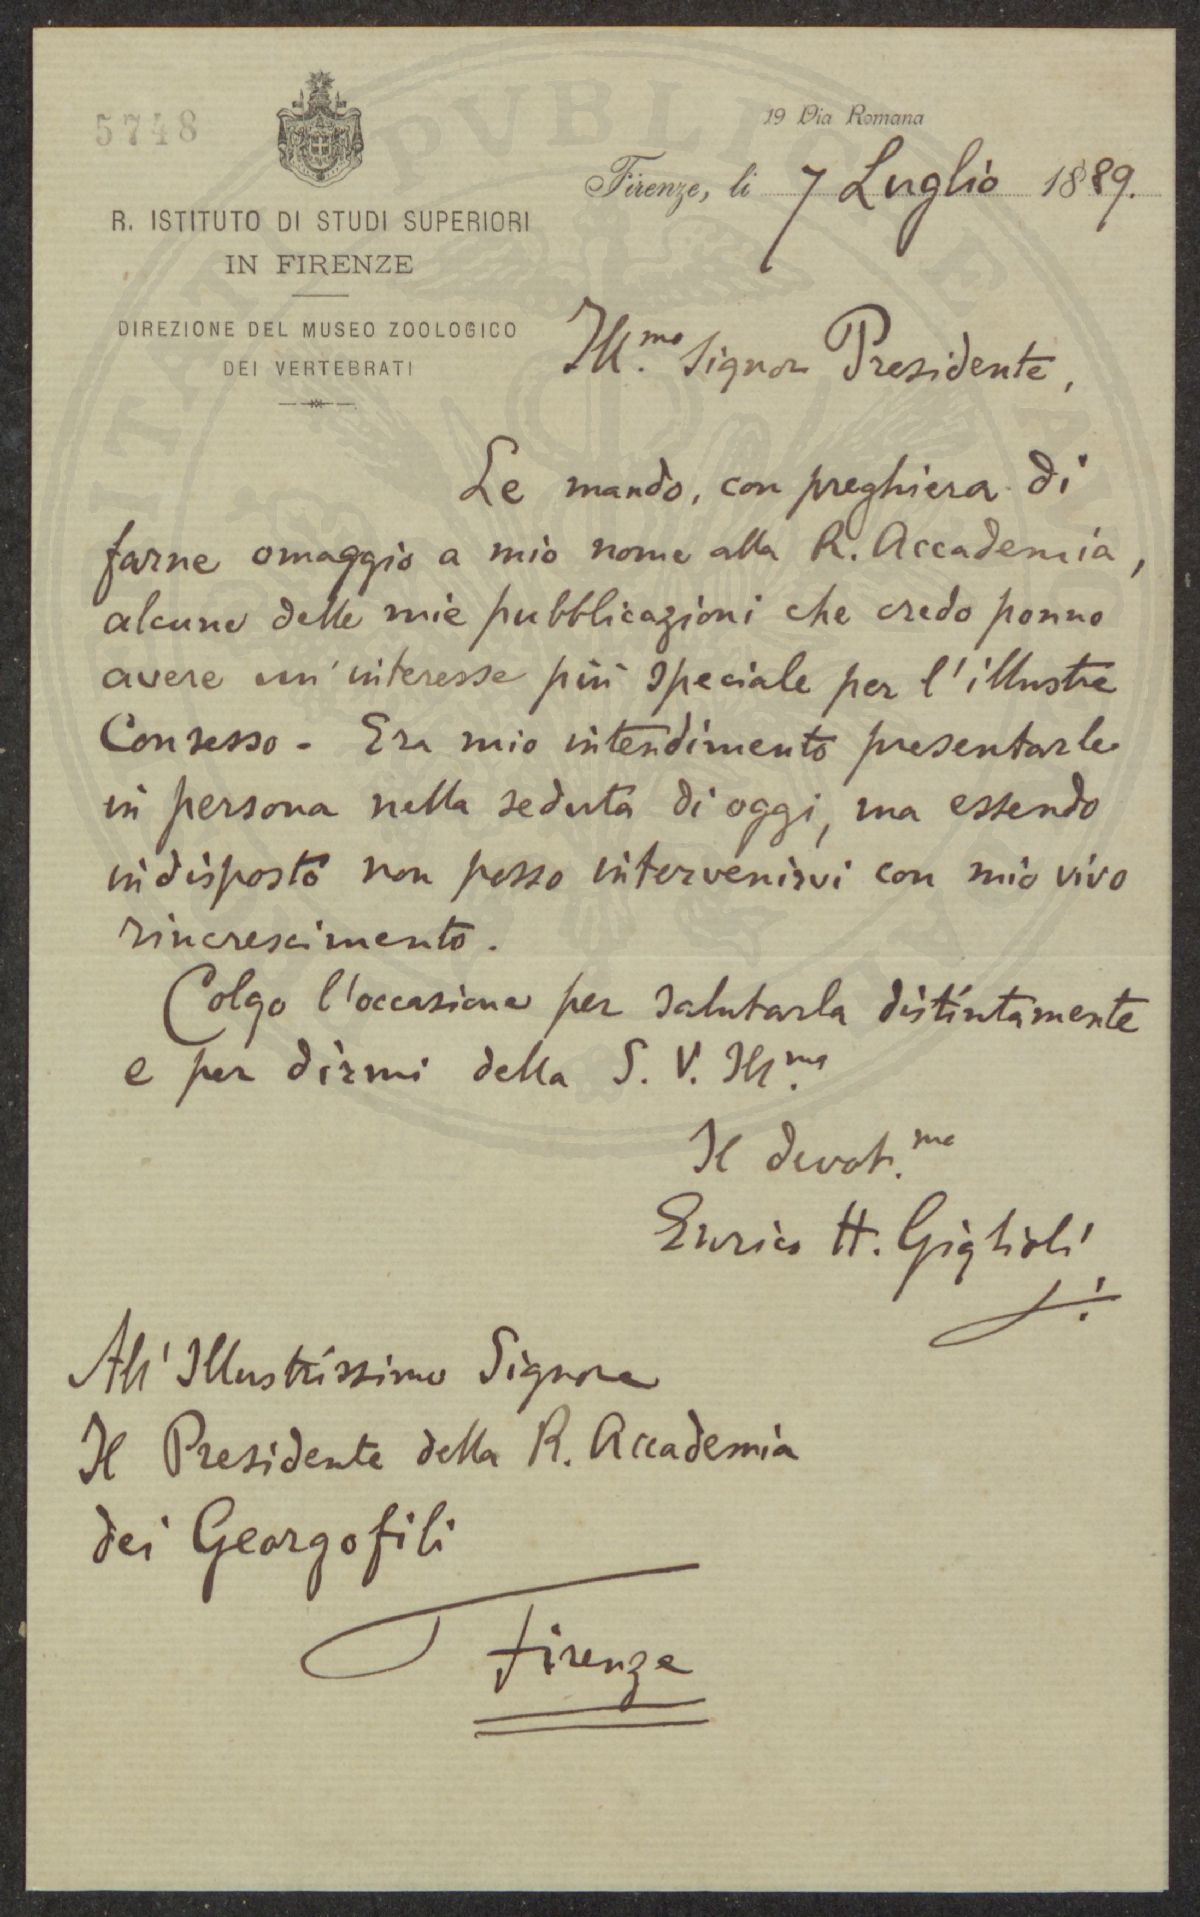 5748
19 Via Romana
Firenze, li 7 Luglio 1889.
R. ISTITUTO DI STUDI SUPERIORI
IN FIRENZE
DIREZIONE DEL MUSEO ZOOLOGICO
DEI VERTEBRATI
Ill.mo Signor Presidente,
Le mando, con preghiera di
farne omaggio a mio nome alla R. Accademia,
alcune delle mie pubblicazioni che credo ponno
avere un'interesse più speciale per l'illustre
Consesso - Era mio intendimento presentarle
in persona nella seduta di oggi, ma essendo
indisposto non posso intervenirvi con mio vivo
rincrescimento.
Colgo l'occasione per salutarla distintamente
e per dirmi della S. V. Ill.ma
Il devot.mo
Enrico H. Giglioli
All'Illustrissimo Signore
Il Presidente della R. Accademia
dei Georgofili
Firenze